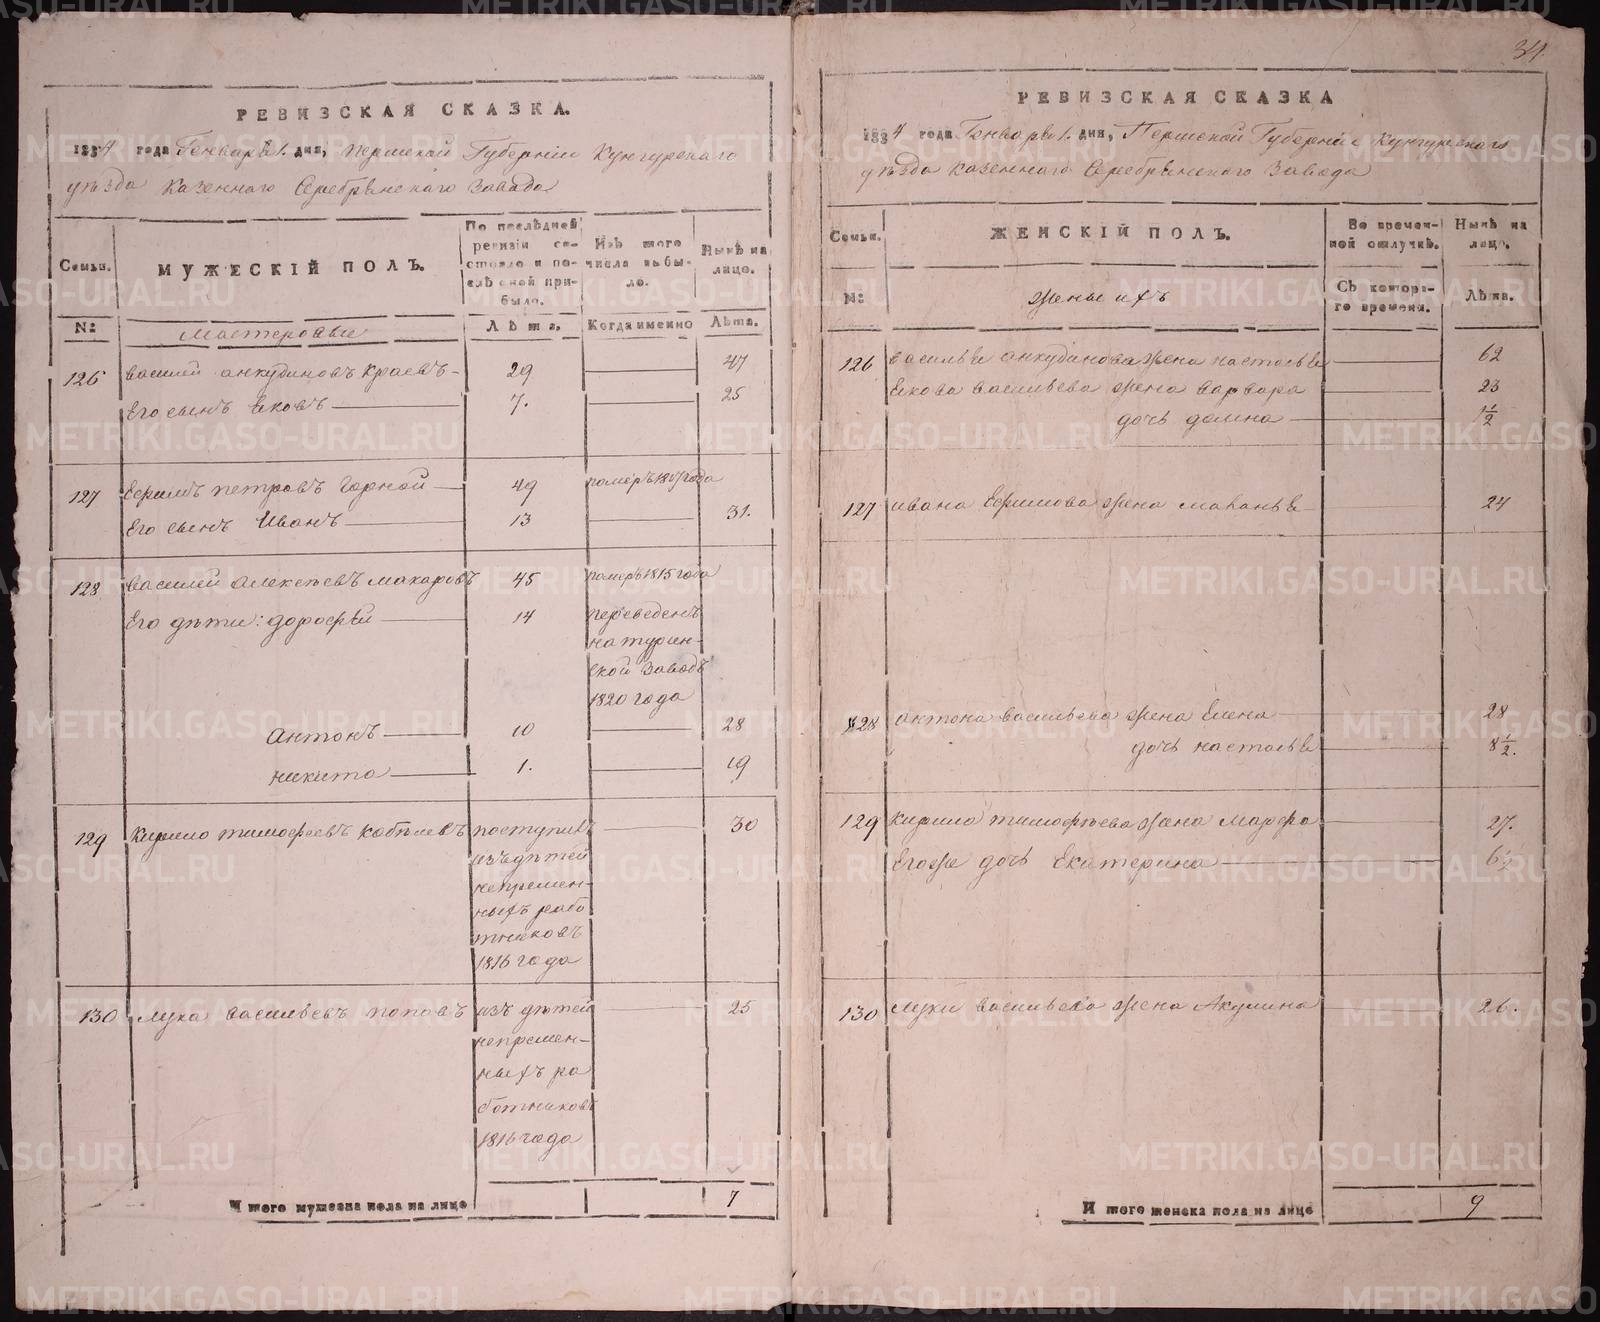 34.
РЕВИЗСКАЯ СКАЗКА.
1834 года Генваря 1. дня, Пермской Губернiи Кунгурского
уѣзда казенного Серебрянского Завода
Семьи.
МУЖЕСКIЙ ПОЛЪ.
По послѣдней ревизiи состояло и послѣ оной прибыло.
Изъ того числа выбыло.
Нынѣ на лицо.
№:
Мастеровые
Лѣта.
Когда именно
Лѣта.
126 Василий анкудиновъ Краевъ 29 47
Его сынъ Яковъ 7. 25
127 Ефимъ петровъ Горной 49 померъ 1817 года
Его сынъ Иванъ 13 31.
128 Василей алексѣевъ макаровъ 45 померъ 1815 года
Его дѣти: дорофѣй 14 переведенъ
на турин-
ской заводъ
1820 года
Антонъ 10 28
никита 1. 19
129 Кирило тимофеевъ кобылевъ поступилъ 30
изъ дѣтей
непремен-
ныхъ рабо
тниковъ
1816 года
130 лука васильевъ поповъ изъ дѣтей 25
непремен-
ныхъ ра
ботниковъ
1816 года
Итого мужеска пола на лицо 7
РЕВИЗСКАЯ СКАЗКА
1834 года Генваря 1. дня, Пермской Губернiи Кунгурского
уѣзда казенного Серебрянского Завода
Семьи.
ЖЕНСКIЙ ПОЛЪ.
Во времен-
ной отлучкѣ.
Нынѣ на
лицо.
№:
жены ихъ
Съ котора-
го времени.
Лѣта.
126 василья анкудинова жена настасья 62
Якова васильева жена варвара 23
дочь домна 1½
127 ивана Ефимова жена маланья 24
128 антона васильева жена Елена 28
дочь настасья 8½.
129 Кирила тимофѣева жена Марфа 27.
Егоже дочь Екатерина 6½
130 луки васильева жена Акулина 26.
Итого женска пола на лицо 9
METRIKI.GASO-URAL.RU